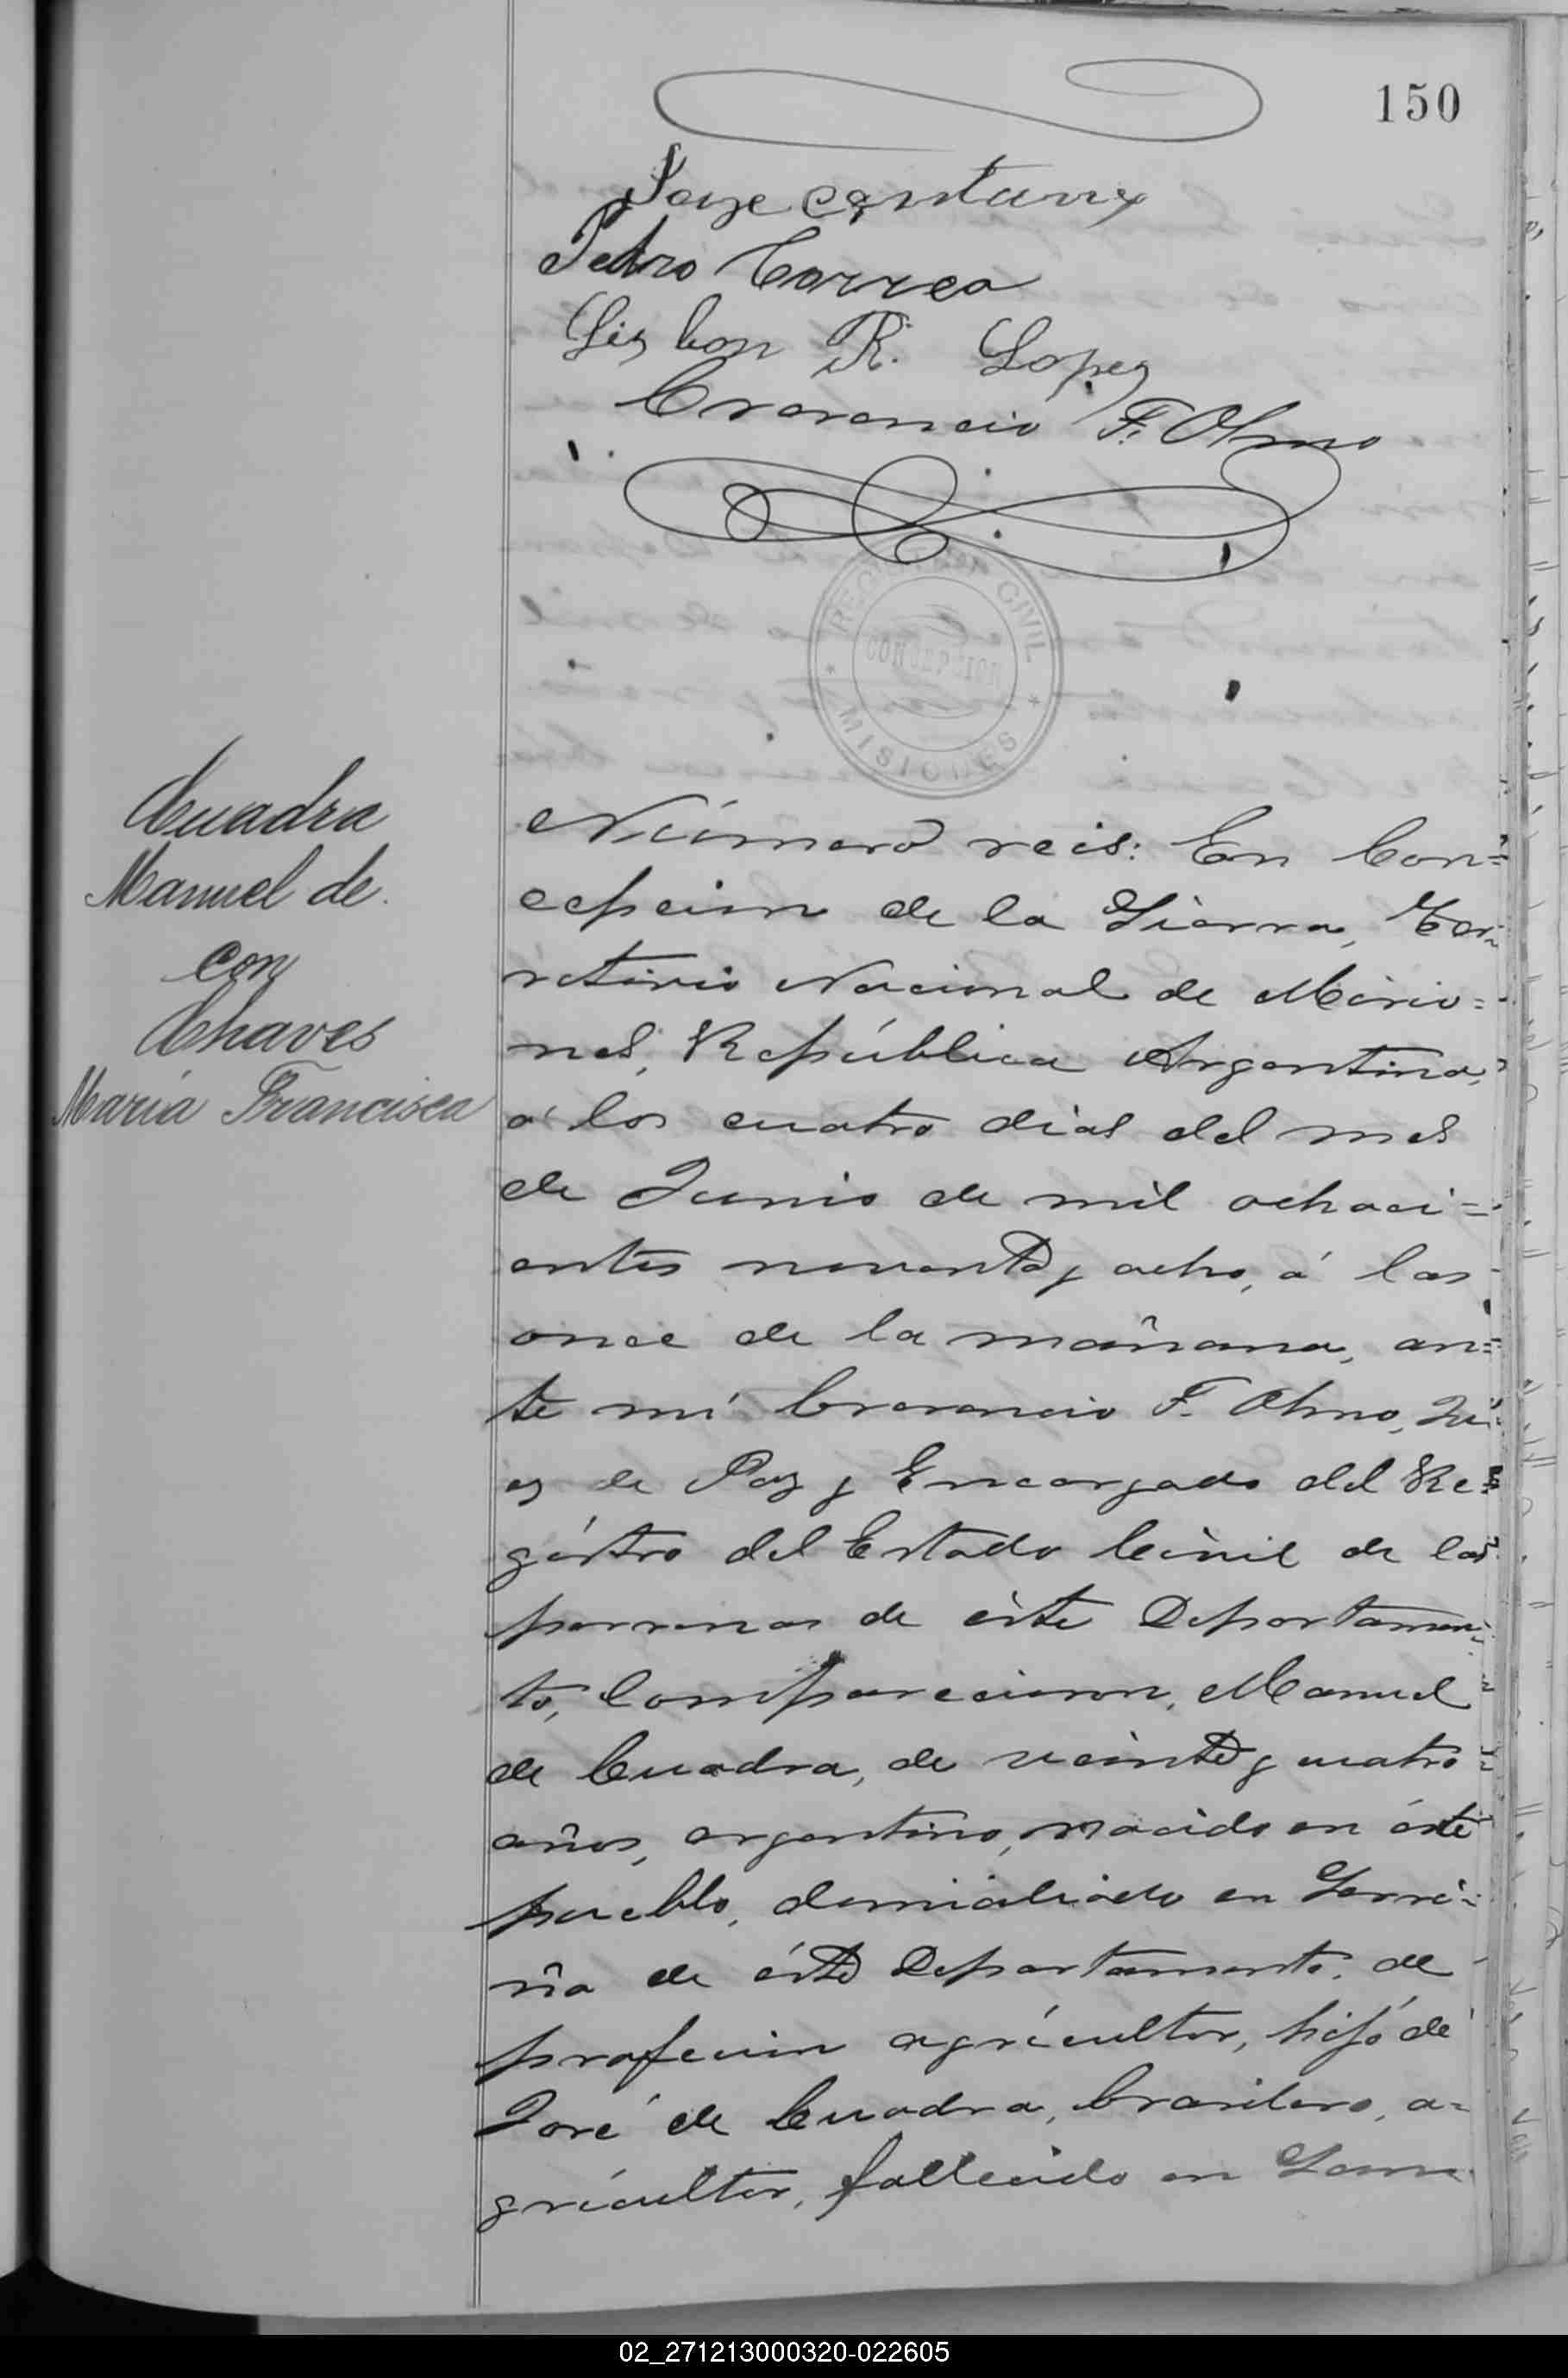 150
Pedro Correa
Lisbon R. Lopez
Cravancio F. Olmo
REGISTRO CIVIL
CONCEPCION
MISIONES
Cuadra
Manuel de
con
Chaves
María Francisca
Número seis: En Con=
cepcion de la Sierra, Ter=
ritorio Nacional de Misio=
nes, República Argentina,
á los cuatro dias del mes
de Junio de mil ochoci=
entos noventa y ocho, á las
once de la mañana, an=
te mi Cravancio F. Olmo, Ju=
ez de Paz y Encargado del Re=
gistro del Estado Civil de las
personas de éste Departamen=
to, Comparecieron, Manuel
de Cuadra, de veinte y cuatro
años, argentino, nacido en éste
pueblo, domiciliado en
de éste Departamento, de
profecion agricultor, hijo de
José de Cuadra, brasilero, a=
gricultor, fallecido en
02_271213000320-022605